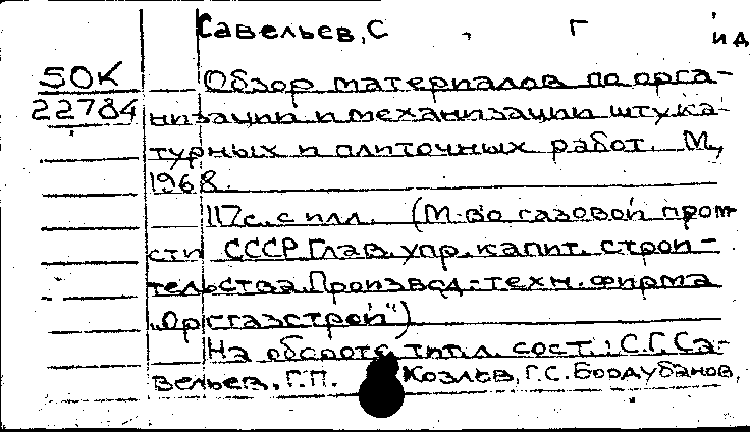 Савельев, С Г и д
50К Обзор материалов по орга-
22784 низации и механизации штука-
турных и плиточных работ. М,
1968.
117с. с илл. (М-во газовой пром
сти СССР. Глав. упр. капит. строи-
тельства. Производ.-техн. фирма
"Оргтазстрой")
На обороте тит. л. сост.: С.Г. Са-
вельев, Г.П. Козлов, Г.С. Бордубанов,